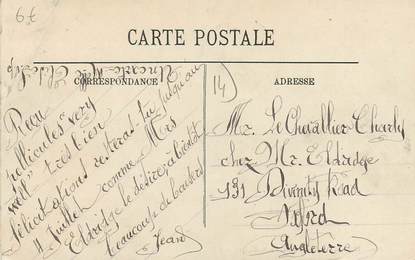 67
CARTE POSTALE
CORRESPONDANCE
ADRESSE
14
Reçu
pellicules "very
well" très bien
félicitations resteras-tu jusqu'au
11 Juillet comme Mrs
Eldridge le désire, a bientôt
beaucoup de baisers
Jean
Mr. Le Chevallier Charly
chez Mr. Eldridge
131 Divinity Road
Oxford
Angleterre